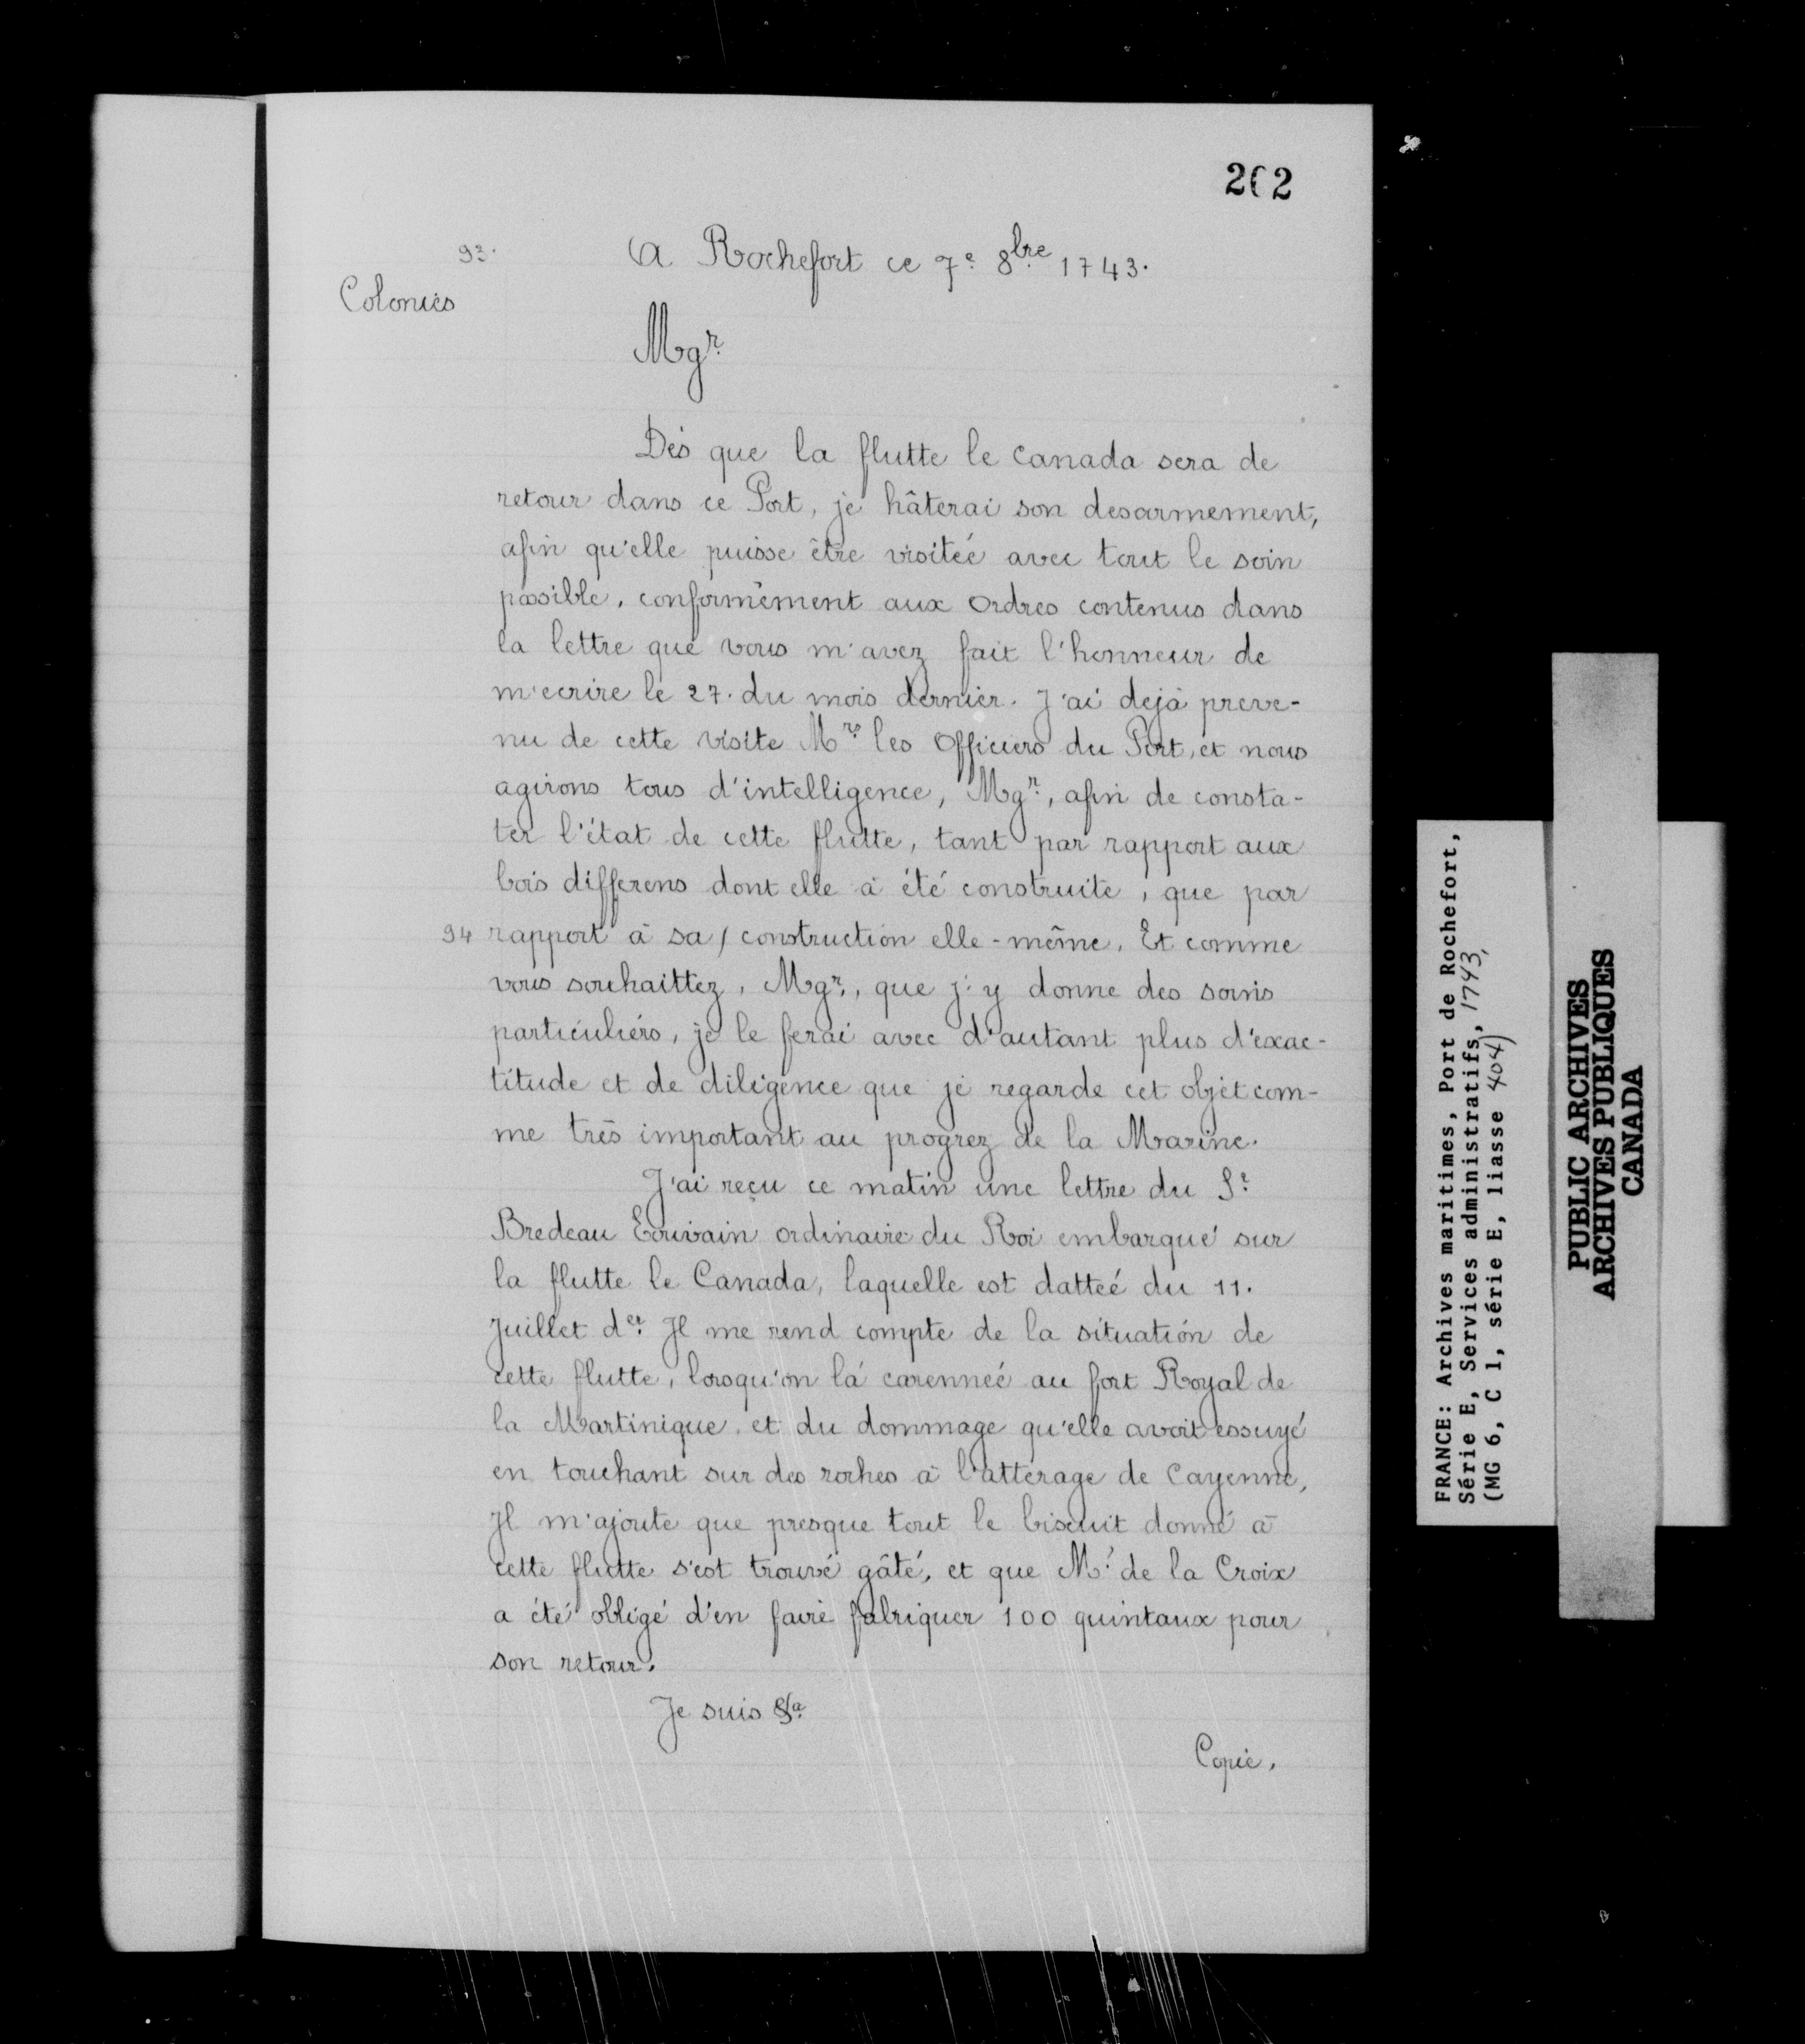 202
93.
A Rochefort ce 7e. 8bre. 1743.
Colonies
Mgr.
Dès que la flutte le Canada sera de
retour dans ce Port, je hâterai son desarmement,
afin qu'elle puisse être visitée avec tout le soin
possible, conformément aux ordres contenus dans
la lettre que vous m'avez fait l'honneur de
m'ecrire le 27. du mois dernier. J'ai dejà preve-
nu de cette visite Mrs. les Officiers du Port, et nous
agirons tous d'intelligence, Mgr., afin de consta-
ter l'état de cette flutte, tant par rapport aux
bois differens dont elle a été construite, que par
94 rapport à sa / construction elle-même. Et comme
vous souhaittez, Mgr., que j'y donne des soins
particuliers, je le ferai avec d'autant plus d'exac-
titude et de diligence que je regarde cet objet com-
me très important au progrez de la Marine.
J'ai reçu ce matin une lettre du Sr.
Bredeau Ecrivain ordinaire du Roi embarqué sur
la flutte le Canada, laquelle est dattée du 11.
Juillet der. Il me rend compte de la situation de
cette flutte, lorsqu'on l'a carennée au fort Royal de
la Martinique, et du dommage qu'elle avoit essuyé
en touchant sur des roches à l'atterage de Cayenne,
Il m'ajoute que presque tout le biscuit donné à
cette flutte s'est trouvé gâté, et que Mr. de la Croix
a été obligé d'en faire fabriquer 100 quintaux pour
son retour.
Je suis &a.
Copie.
FRANCE: Archives maritimes, Port de Rochefort,
Série E, Services administratifs, 1743,
(MG 6, C 1, série E, liasse 404)
PUBLIC ARCHIVES
ARCHIVES PUBLIQUES
CANADA